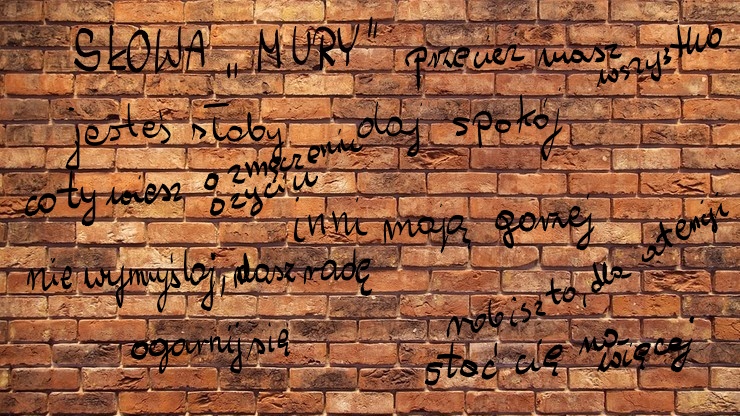 SŁOWA „MURY”
przecież masz wszystko
jesteś słaby
daj spokój
co ty wiesz o zmęczeniu
o życiu
inni mają gorzej
nie wymyślaj, dasz radę
robisz to, dla atencji
ogarnij się
stać cię na
więcej